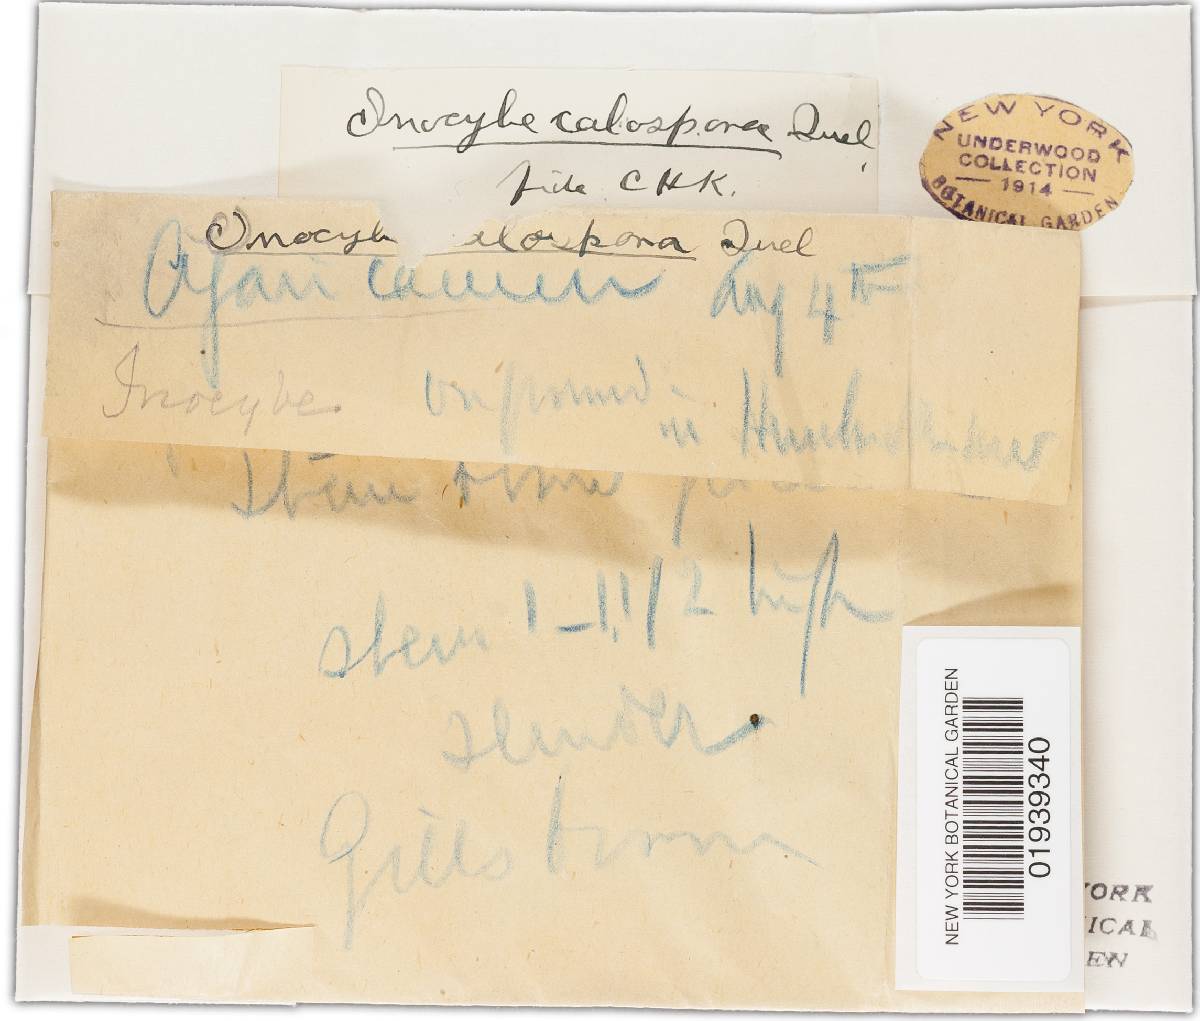 Inocybe calospora Quel
fide CHK.
NEW YORK
UNDERWOOD
COLLECTION
1914
BOTANICAL GARDEN
Inocyb alospora Quel
Aug 4th
Inocybe
on ground
in
Stem
stem 1-1,1/2 high
slender
Gills brown
NEW YORK BOTANICAL GARDEN
01939340
ORK
ICAL
EN